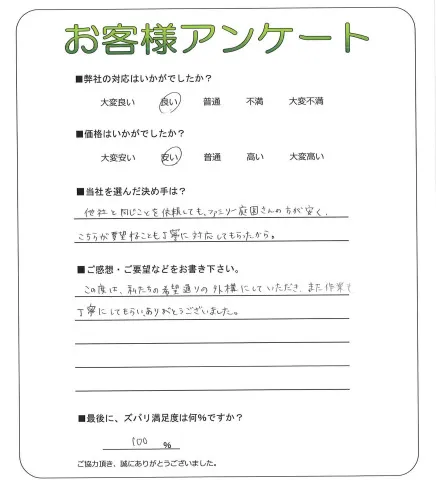 お客様アンケート
■弊社の対応はいかがでしたか？
大変良い 良い 普通 不満 大変不満
■価格はいかがでしたか？
大変安い 安い 普通 高い 大変高い
■当社を選んだ決め手は？
他社と同じことを依頼しても、ファミリー庭園さんの方が安く、
こちらが要望することも丁寧に対応してもらったから。
■ご感想・ご要望などをお書き下さい。
この度は、私たちの希望通りの外構にしていただき、また作業も
丁寧にしてもらいありがとうございました。
■最後に、ズバリ満足度は何％ですか？
100 ％
ご協力頂き、誠にありがとうございました。